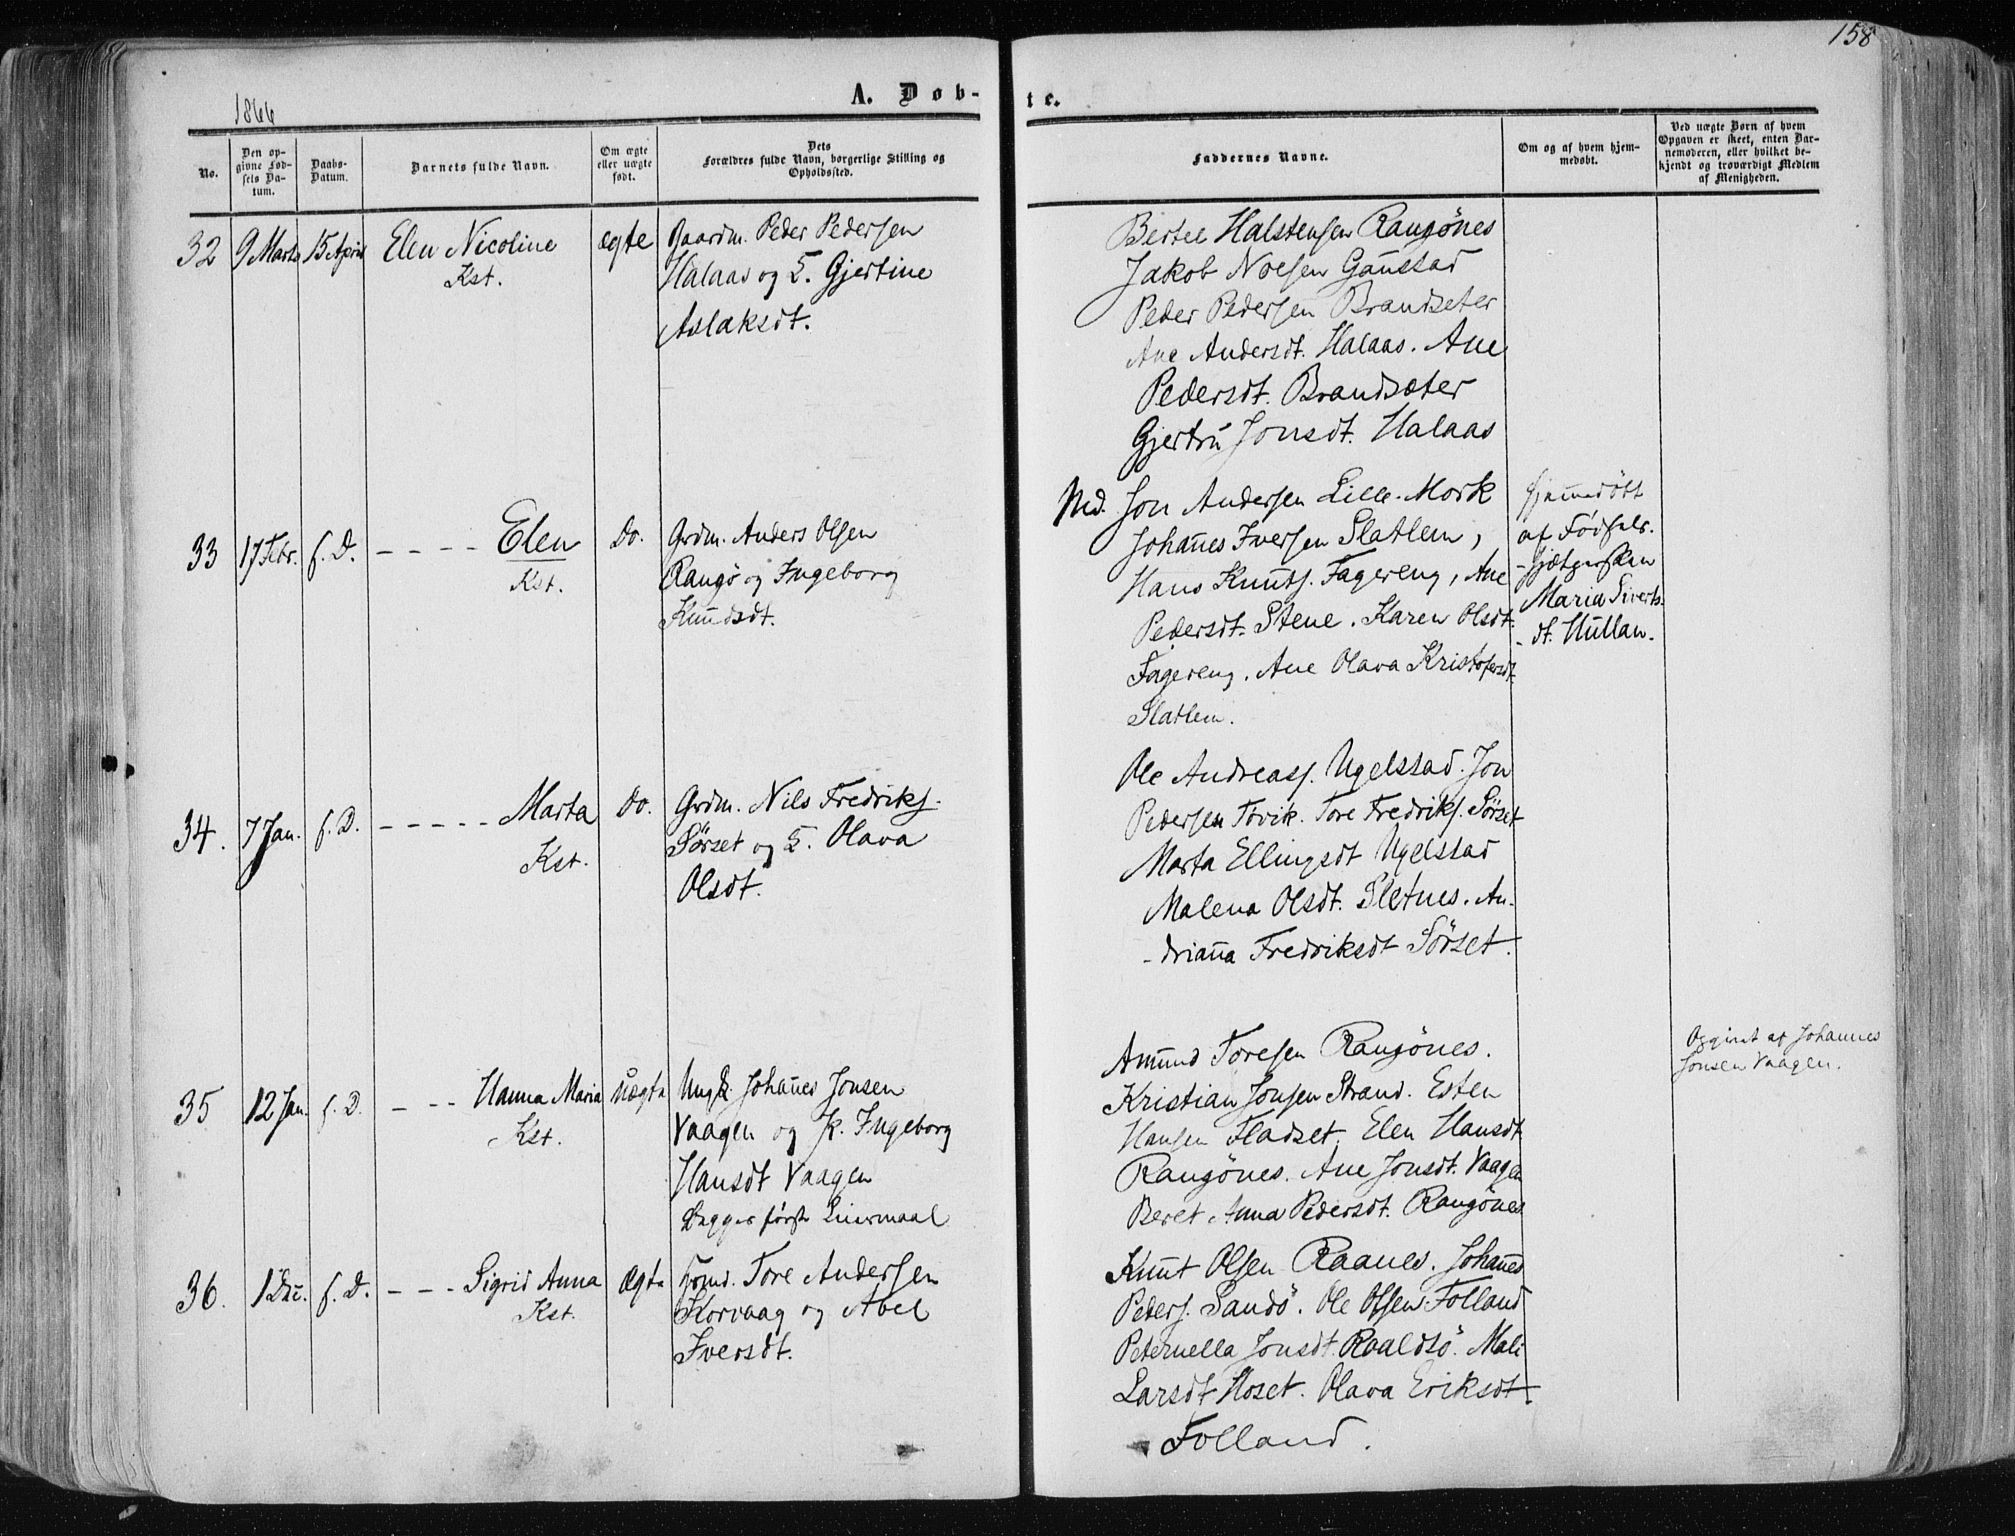 158
1866
A. Døb-
te.
No.
Den op-
givne Fød-
sels Da-
tum.
Daabs-
Datum.
Barnets fulde Navn.
Om ægte
eller uægte
født.
Dets
Forældres fulde Navn, borgerlige Stilling og
Opholdssted.
Faddernes Navne.
Om og af hvem hjem-
medøbt.
Ved uægte Børn af hvem
Opgaven er skeet, enten Bar-
nemoderen, eller hvilket be-
kjendt og troværdigt Medlem
af Menigheden.
32 9 Marts 15 April Elen Nicoline ægte Gaardm. Peder Pedersen
Kst. Halaas og H. Gjertine
Aslaksdt.
Bertel Halstensen Rangønes
Jakob Noesen Gaustad
Peder Pedersen Brandseter
Ane Andersdt. Halaas. Ane
Pedersdt. Brandsæter
Gjertru Jonsdt. Halaas
33 17 Febr. f. D. - - - - Elen Do. Grdm. Anders Olsen
Kst. Rangø og Ingeborg
Knudsdt.
Md. Jon Andersen Lille-Mork
Johannes Iversen Slatlem,
Hans Knuts. Fagereng, Ane
Pedersdt. Stene. Karen Olsdt.
Fagereng. Ane Olava Kristofersdt.
Slatlem.
Hjemmedøbt
af Fødsels-
-hjælpersken
Maria Siverts-
-dt. Hullan.
34. 7 Jan. f. D. - - - - - Marta Do. Grdm. Nils Fredriks.
Kst. Sørset og H. Olava
Olsdt.
Ole Andreass. Ugelstad. Jon
Pedersen Tøvik. Tore Fredriks. Sørset
Marta Ellingsdt Ugelstad
Malena Olsdt. Sletnes. An-
-drianna Fredriksdt Sørset.
35 12 Jan. f. D. - - - Hanna Maria uægte Ungk. Johannes Jonsen
Kst. Vaagen og P. Ingeborg
Hansdt Vaagen
Begges første Leiermaal
Amund Toresen Rangønes.
Kristian Jonsen Strand. Esten
Hansen Fladset. Elen Hansdt
Rangønes. Ane Jonsdt. Vaagen
Beret Anna Pedersdt. Rangønes
Opgivet af Johannes
Jonsen Vaagen.
36. 1 Dec. f. D. - - - Sigrid Anna ægte Grmd. Tore Andersen
Kst. Korvaag og Abel
Iversdt.
Knut Olsen Raanes. Johannes
Peders. Sandø. Ole Olsen Folland
Peternella Jonsdt. Roaldsø. Mali
Larsdt Hoset. Olava Eriksdt
Folland.